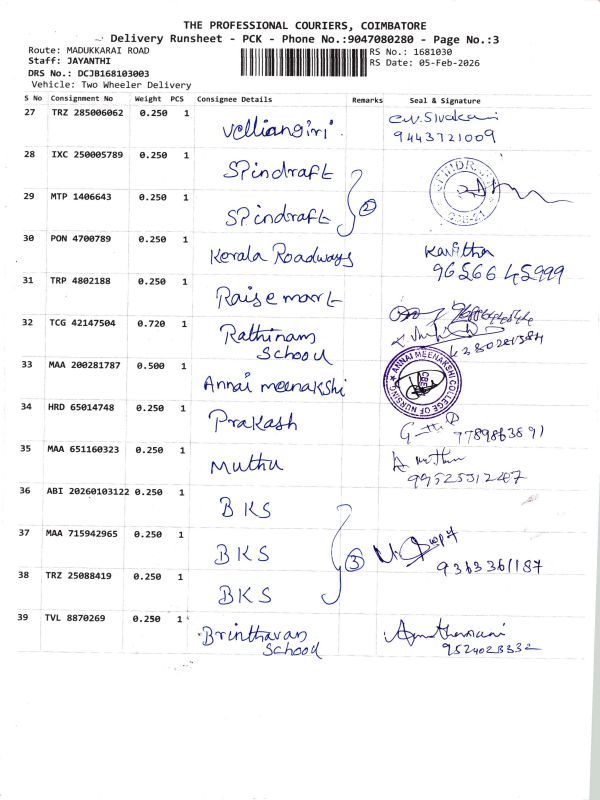 THE PROFESSIONAL COURIERS, COIMBATORE
Delivery Runsheet - PCK - Phone No.:9047080280 - Page No.:3
Route: MADUKKARAI ROAD
RS No.: 1681030
Staff: JAYANTHI
RS Date: 05-Feb-2026
DRS No.: DCJB168103003
Vehicle: Two Wheeler Delivery
S No Consignment No Weight PCS Consignee Details Remarks Seal & Signature
27 TRZ 285006062 0.250 1 Velliangiri. C.V. Sivakani
9443721009
28 IXC 250005789 0.250 1 Spindraft
29 MTP 1406643 0.250 1 Spindraft 2
30 PON 4700789 0.250 1 Kerala Roadways Kavitha
96566 45999
31 TRP 4802188 0.250 1 Raise mart
32 TCG 42147504 0.720 1 Rathinam
School
33 MAA 200281787 0.500 1 Annai meenakshi ANNAI MEENAKSHI COLLEGE OF NURSING CBE
34 HRD 65014748 0.250 1 Prakash
7789863891
35 MAA 651160323 0.250 1 Muthu
99525312487
36 ABI 20260103122 0.250 1 BKS
37 MAA 715942965 0.250 1 BKS 3
9363361187
38 TRZ 25088419 0.250 1 BKS
39 TVL 8870269 0.250 1 Brinthavan
School
9524023332